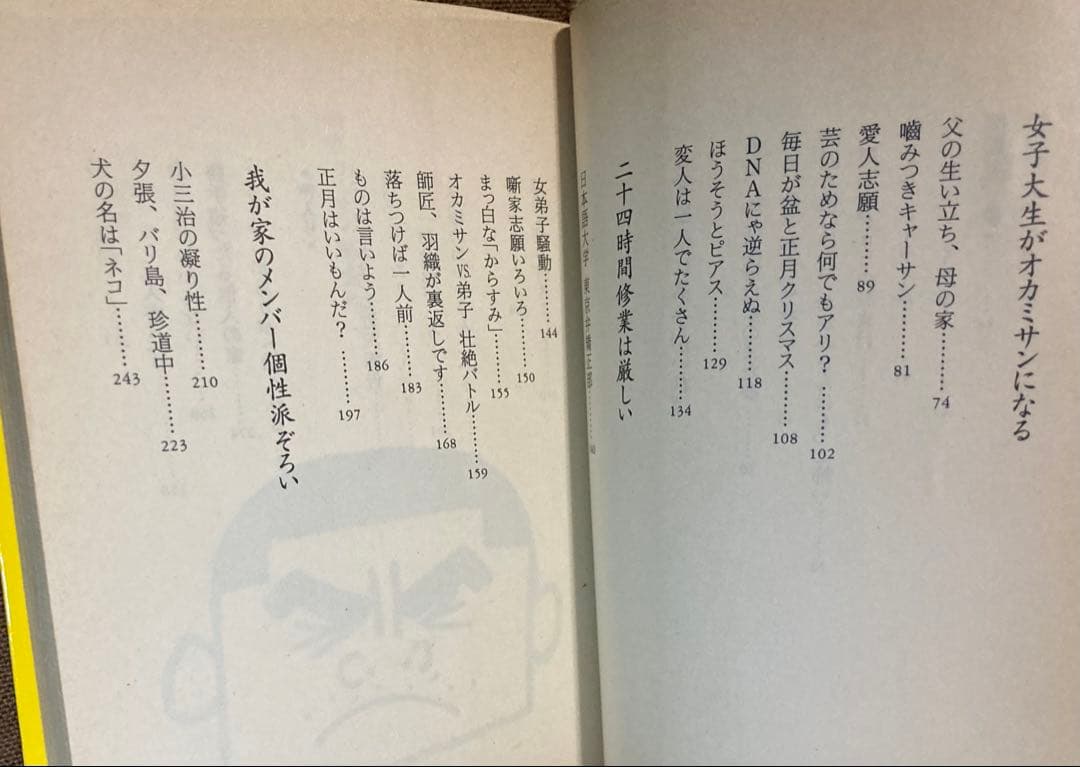 女子大生がオカミサンになる
父の生い立ち、母の家………74
嚙みつきキャーサン………81
愛人志願………89
芸のためなら何でもアリ？………102
毎日が盆と正月クリスマス………108
DNAにゃ逆らえぬ………118
ほうそうとピアス………129
変人は一人でたくさん………134
二十四時間修業は厳しい
日本語大学
女弟子騒動………144
噺家志願いろいろ………150
まっ白な「からすみ」………155
オカミサンVS.弟子 壮絶バトル………159
師匠、羽織が裏返しです………168
落ちつけば一人前………183
ものは言いよう………186
正月はいいもんだ？………197
我が家のメンバー個性派ぞろい
小三治の凝り性………210
夕張、バリ島、珍道中………223
犬の名は「ネコ」………243